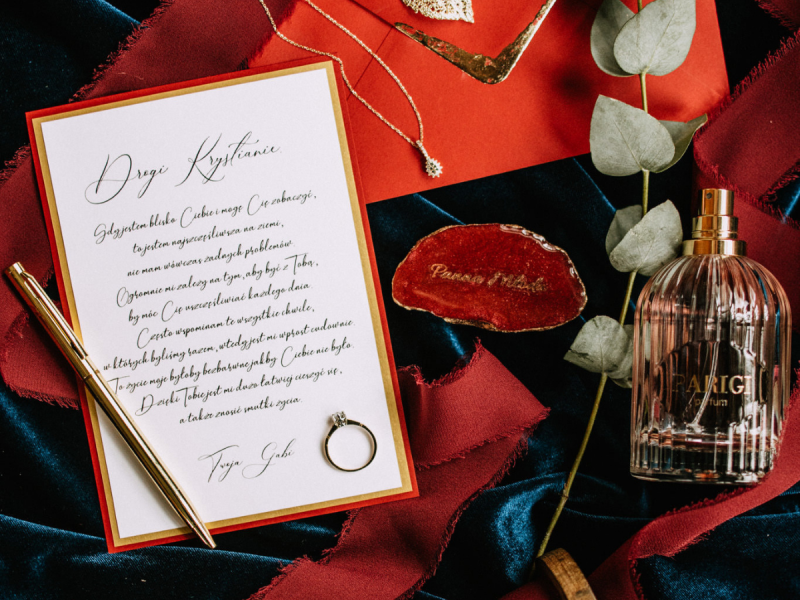 Drogi Krystianie,
Gdy jestem blisko Ciebie i mogę Cię zobaczyć,
to jestem najszczęśliwsza na ziemi,
nie mam wówczas żadnych problemów.
Ogromnie mi zależy na tym, aby być z Tobą,
by móc Cię uszczęśliwiać każdego dnia.
Często wspominam te wszystkie chwile,
w których byliśmy razem, wtedy jest mi wprost cudownie.
To życie moje byłoby bezbarwne jakby Ciebie nie było.
Dzięki Tobie jest mi dużo łatwiej cieszyć się,
a także znosić smutki życia.
Twoja Gabi
PARIGI
parfum